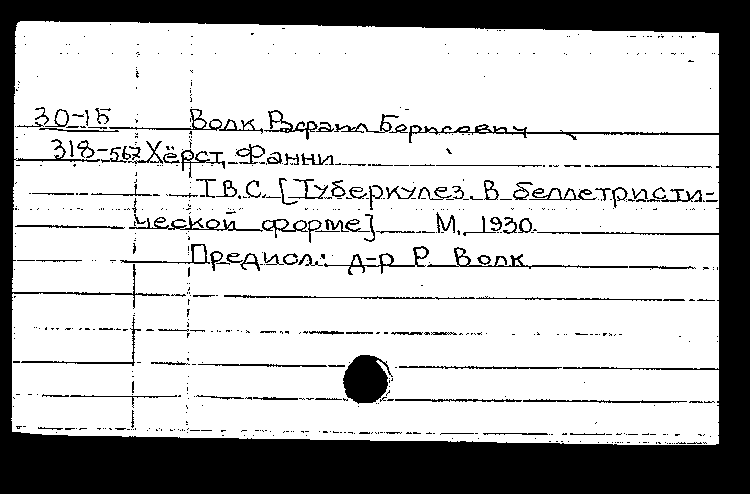 30-15 Волк, Рафаил Борисович
318-567 Хёрст, Фанни
Т.В.С. [Туберкулез. В беллетристи-
ческой форме] М., 1930.
Предисл.: д-р Р. Волк.